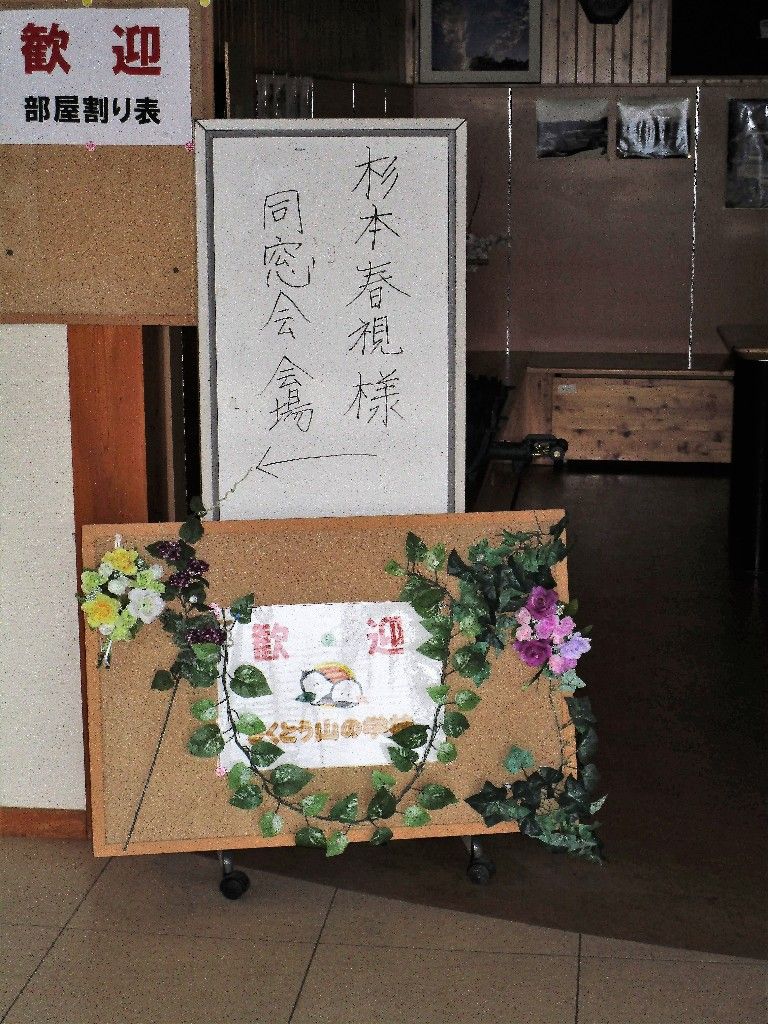 歓迎
部屋割り表
杉本春視様
同窓会 会場
歓迎
くとう山の学校